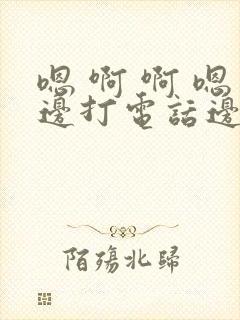 嗯啊啊嗯
邊打電話邊
陌殤北歸